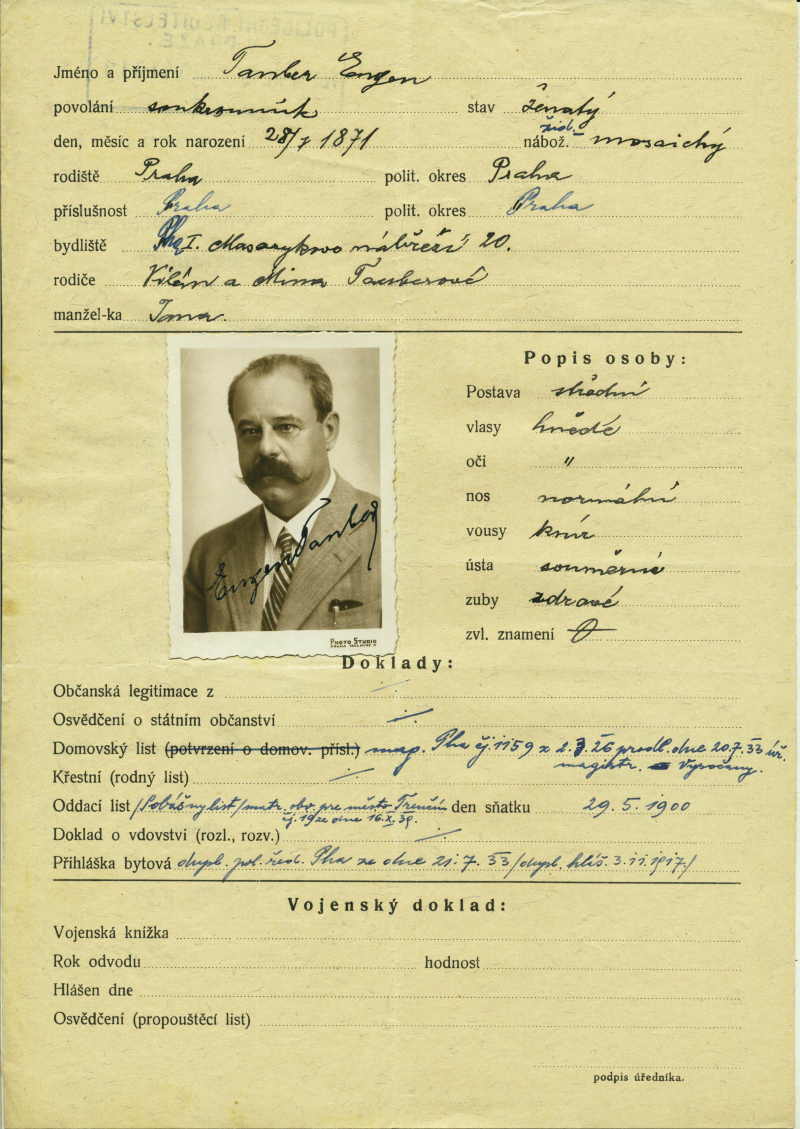 Jméno a příjmení Tauber Eugen
povolání soukromník stav ženatý
žid.
den, měsíc a rok narození 28/7 1871 nábož. mosaický
rodiště Praha polit. okres Praha
příslušnost Praha polit. okres Praha
bydliště Pha I. Masarykovo nábřeží 20.
rodiče Vilém a Mina Tauberové
manžel-ka Irma.
Popis osoby:
Postava střední
vlasy hnědé
oči "
nos normální
vousy knír
ústa souměrné
zuby zdravé
zvl. znamení 0
Eugen Tauber
PHOTO STUDIO
Doklady:
Občanská legitimace z ./.
Osvědčení o státním občanství ./.
Domovský list (potvrzení o domov. přísl.) mag. Pha čj. 1159 z 2.3.26 prodl. dne 20.7.33 úř.
magistr. Vysočany.
Křestní (rodný list) ./.
Oddací list /Sobášny list/ matr. obv. pre mesto Trenčín den sňatku 29.5.1900
čj. 19 ze dne 16.X.39.
Doklad o vdovstvi (rozl., rozv.) ./.
Přihláška bytová dupl. pol. řed. Pha ze dne 21.7.33 /dupl. hlás. 3.11.1917/
Vojenský doklad:
Vojenská knížka
Rok odvodu hodnost
Hlášen dne
Osvědčení (propouštěcí list)
podpis úředníka.